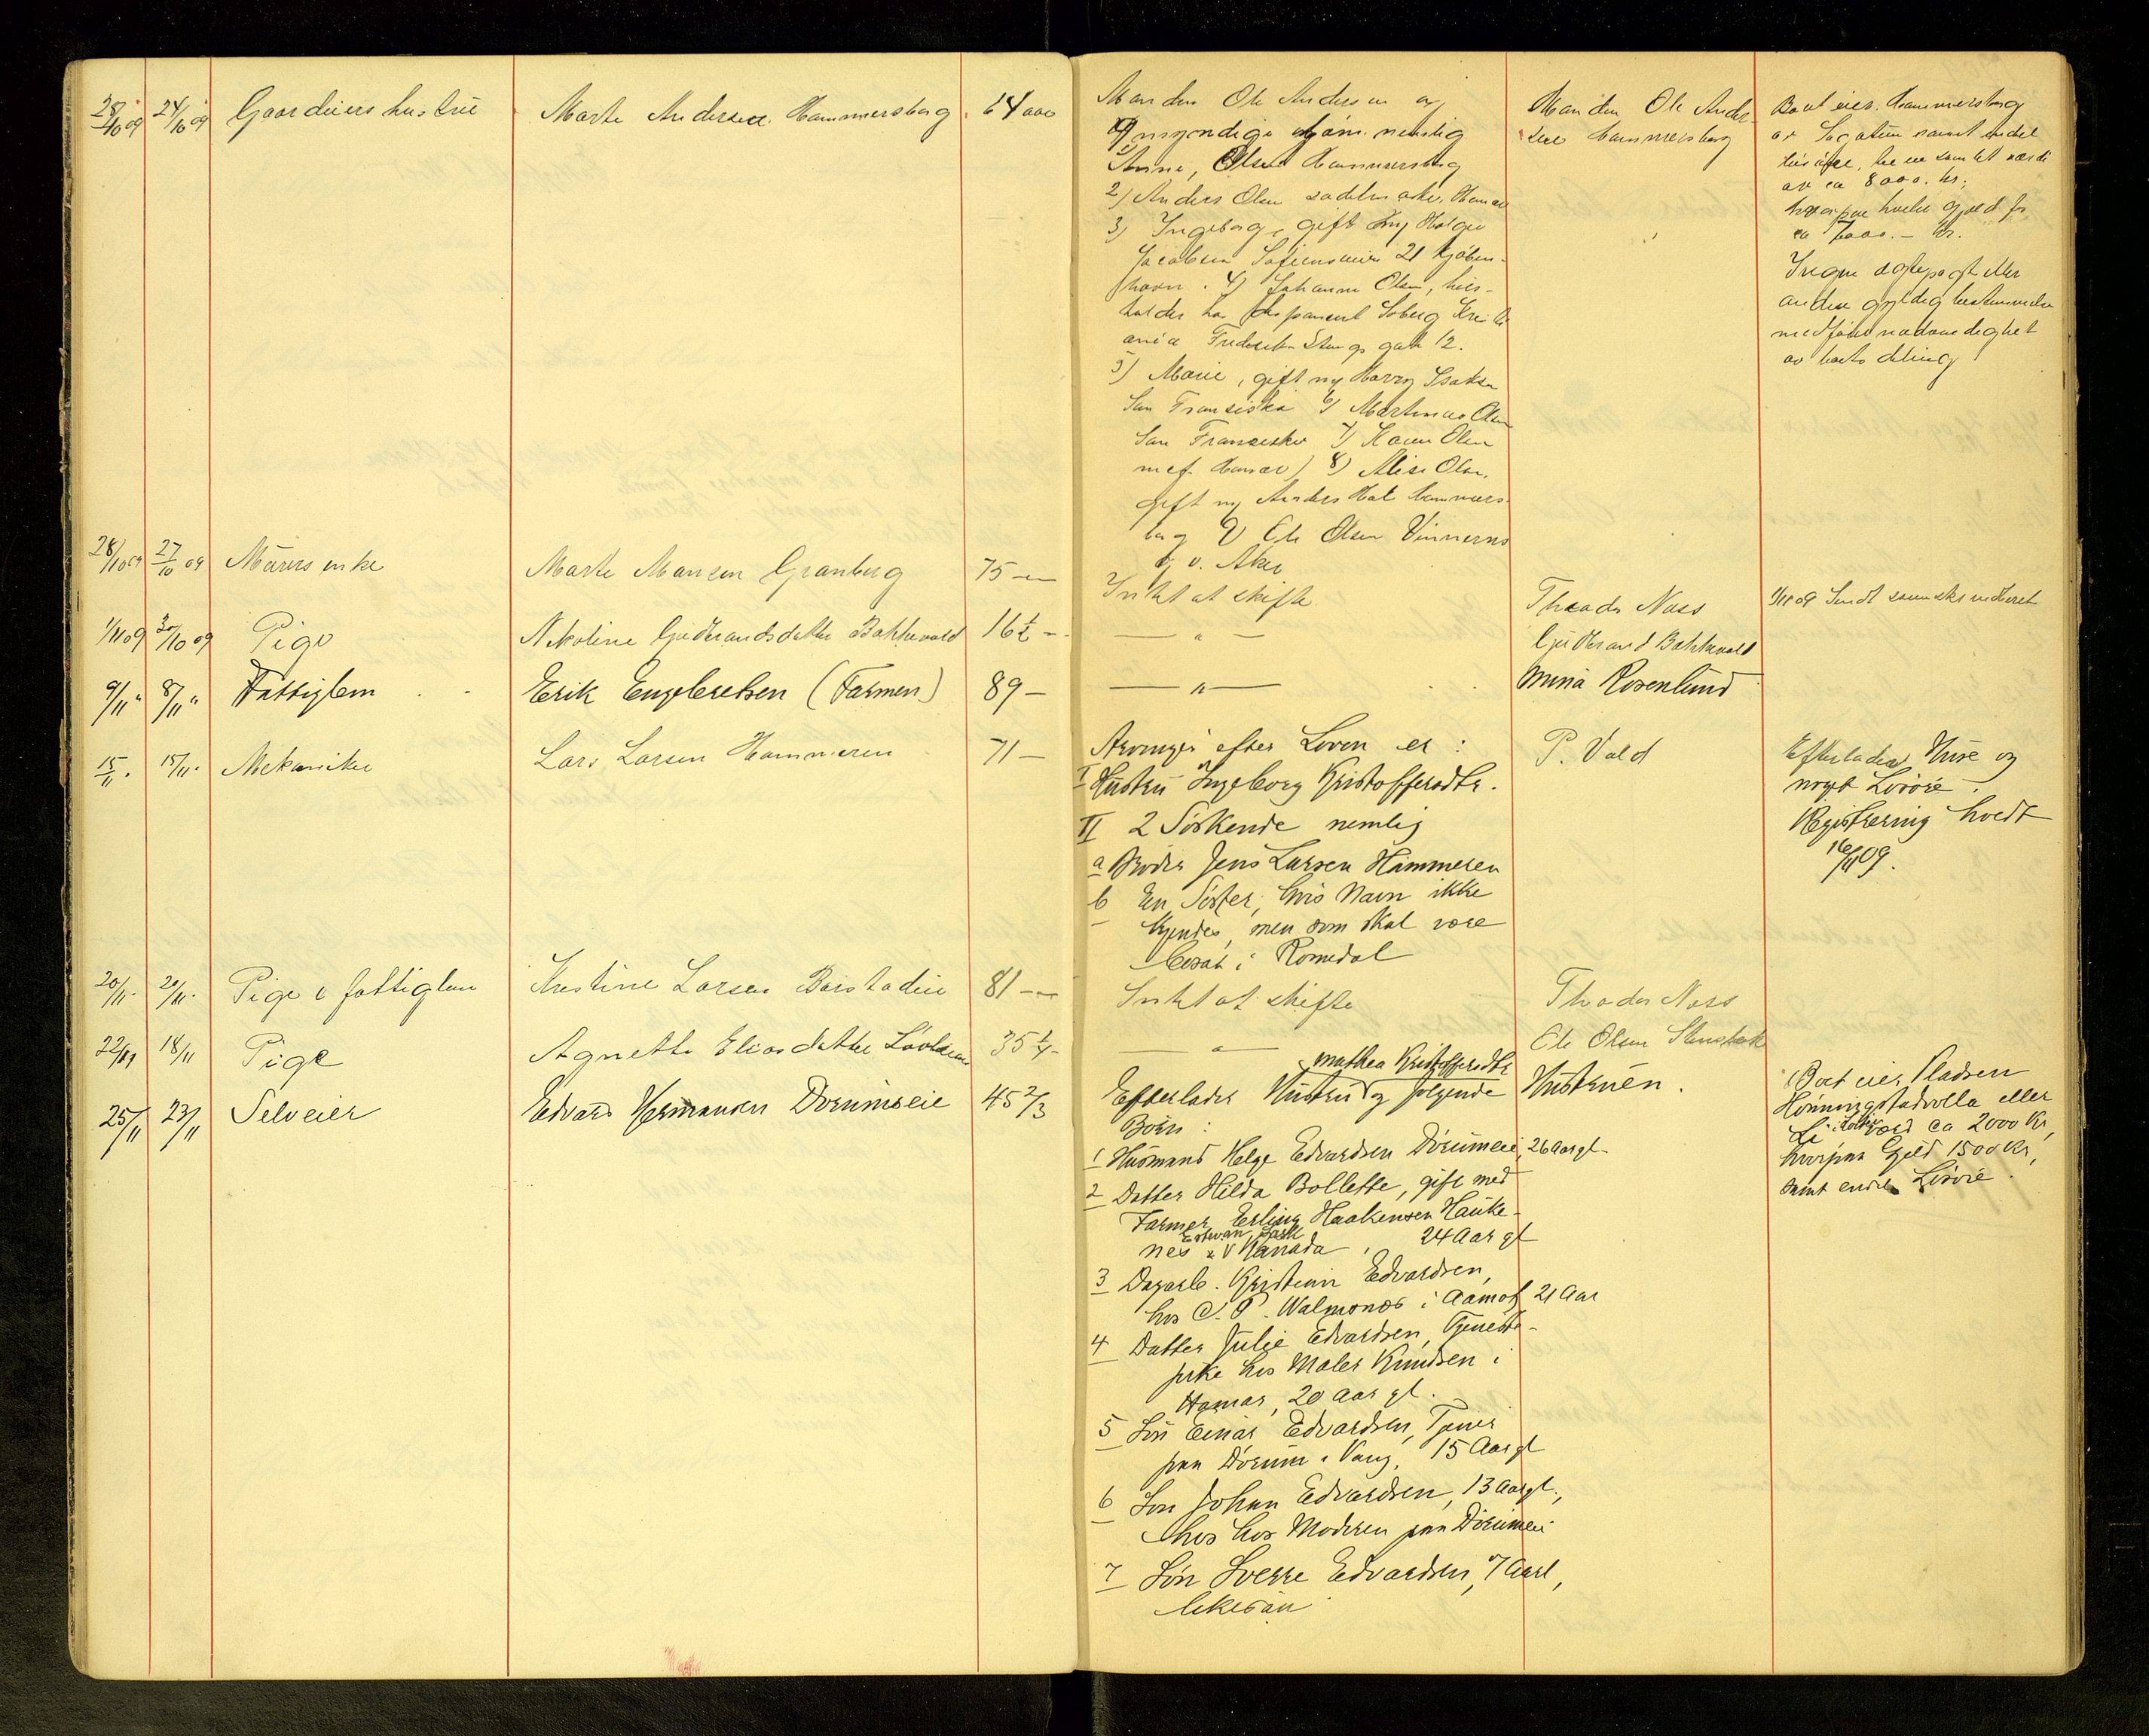 28/10 09 24/10 09 Gaardeiers hustru Marte Andersen Hammersberg 64 aar
Manden Ole Andersen og
myndige børn nemlig
1) Anna, Olsen Hammersberg
2) Anders Olsen sadelmaker, Hamar
3) Ingeborg, gift m/ Holger
Jacobsen Sofiensvei 21 Kjøben-
havn. 4) Johanne Olsen, hus-
holder hos disponent Soberg Kristi
ania Frederik Stangs gate 12.
5) Marie, gift m/ Harry Isaksen
San Fransisko 6) Martinus Olsen
San Fransisko 7) Karen Olsen
Hamar) 8) Alise Olsen,
gift m/ Anders Hammers-
berg 9) Ole Olsen Vinnerns
v. Aker
Manden Ole Ander-
sen Hammersberg
Boet eier Hammersberg
av samt endel
løsøre, til en samlet værdi
av ca 8000. kr;
hvorpaa hviler gjæld for
ca 7000.- kr.
Ingen egtepagt eller
anden gyldig bestemmelse
medfører nødvendighet
av boets deling
28/10 09 27/10 09 Murers enke Marte Mansen Granberg 75 —
Intet at skifte Theodor Næss 1/11 09 Sendt
1/11 09 30/10 09 Pige Nikoline Gudbrandsdatter Bakkevold 16½ —
— " — Gudbrand Bakkevold
9/11 " 8/11 " Fattiglem Erik Engebretsen (Farmen) 89 —
— " — Mina Rosenlund
15/11. 15/11. Mekaniker Lars Larsen Hammeren 71 —
Arvinger efter Loven er: P. Vold
I Hustru Ingeborg Kristoffersdtr.
II 2 Søskende nemlig
a Broder Jens Larsen Hammeren
b En Søster, hvis Navn ikke
kjendes, men som skal være
bosat i Romedal
Efterlader Huse og
noget Løsøre.
Registrering holdt
16/11 09.
20/11. 20/11. Pige & fattiglem Kristine Larsen Børstadeie 81 —
Intet at skifte Theodor Næss
22/11 18/11 Pige Agnethe Eliasdatter 35¼ —
— " — Ole Olsen Stensbak
25/11 23/11 Selveier Edvard Hermansen Dørumseie 45 2/3
Mathea Kristoffersdtr
Efterlader Hustru og følgende Hustruen.
Børn:
1 Husmand Helge Edvardsen Dørumeie, 26 Aar gl.
2 Datter Hilda Bollette, gift med
Farmer Erling Haakensen Hauke-
Estevan Sask
nes i Kanada, 24 Aar gl
3 Dagarb. Kristian Edvardsen,
hos C. P. Walmonos i Aamot 21 Aar
4 Datter Julie Edvardsen, Tjeneste-
pike hos Maler Knudsen i
Hamar, 20 Aar gl.
5 Søn Einar Edvardsen, Tjener
paa Dørum i Vang, 15 Aar gl
6 Søn Johan Edvardsen, 13 Aar gl.,
hos Moderen paa Dørumeie
7 Søn Sverre Edvardsen, 7 Aar,
likesaa
Boet eier Pladsen
Hønningstadvolla eller
Li i Løiten værd ca 2000 Kr,
hvorpaa Gjeld 1500 Kr,
samt endel Løsøre.